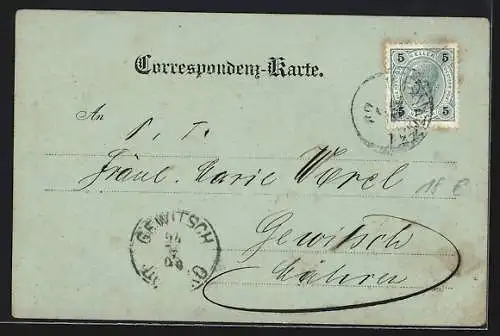 Correspondenz-Karte.
5 5
5 5
An
P. T.
Fräul. Marie Werel
18 €
Gewitsch
Mähren
GEWITSCH
24